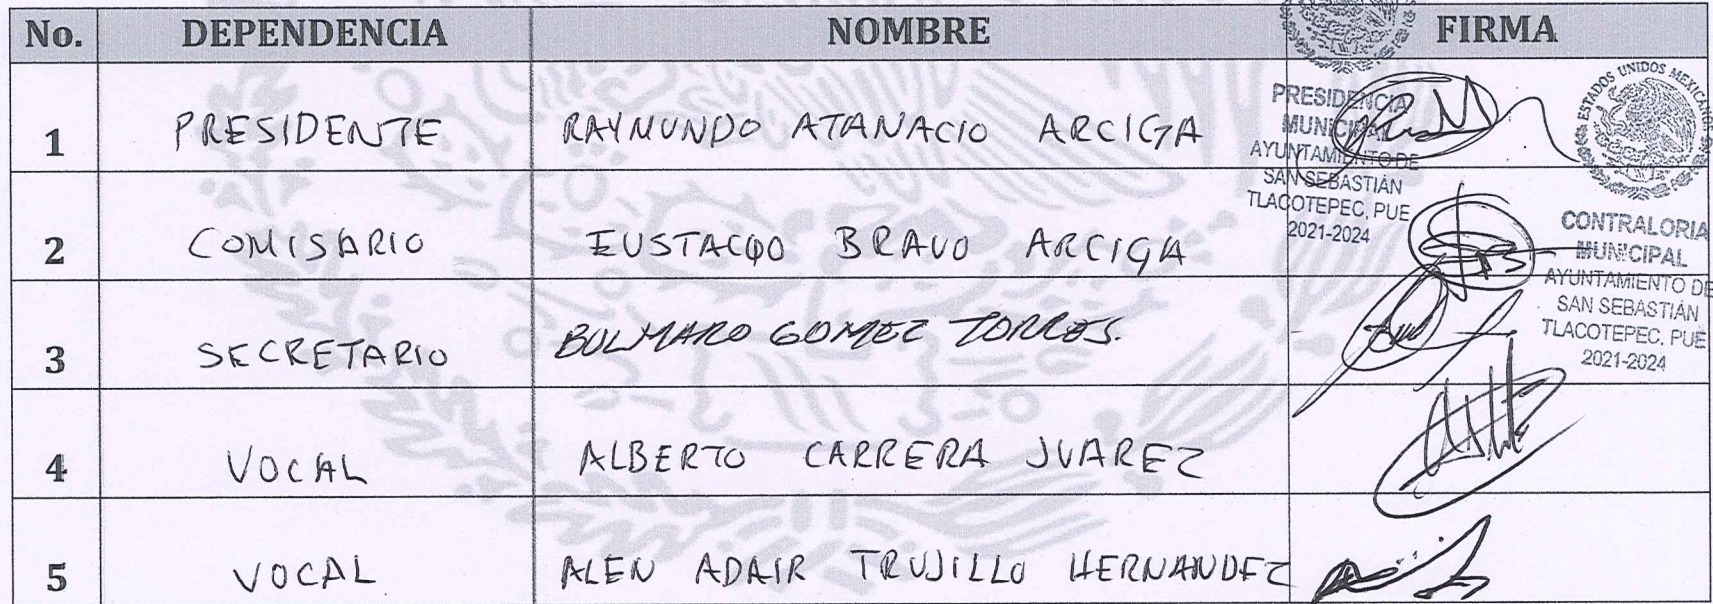 No. DEPENDENCIA NOMBRE FIRMA
1 PRESIDENTE RAYMUNDO ATANACIO ARCIGA
2 COMISARIO EUSTACIO BRAVO ARCIGA
3 SECRETARIO BULMARO GOMEZ TORRES.
4 VOCAL ALBERTO CARRERA JUAREZ
5 VOCAL ALEN ADAIR TRUJILLO HERNANDEZ
PRESIDENCIA
MUNICIPAL
AYUNTAMIENTO DE
SAN SEBASTIÁN
TLACOTEPEC, PUE
2021-2024
ESTADOS UNIDOS MEXICANOS
CONTRALORIA
MUNICIPAL
AYUNTAMIENTO DE
SAN SEBASTIÁN
TLACOTEPEC, PUE
2021-2024